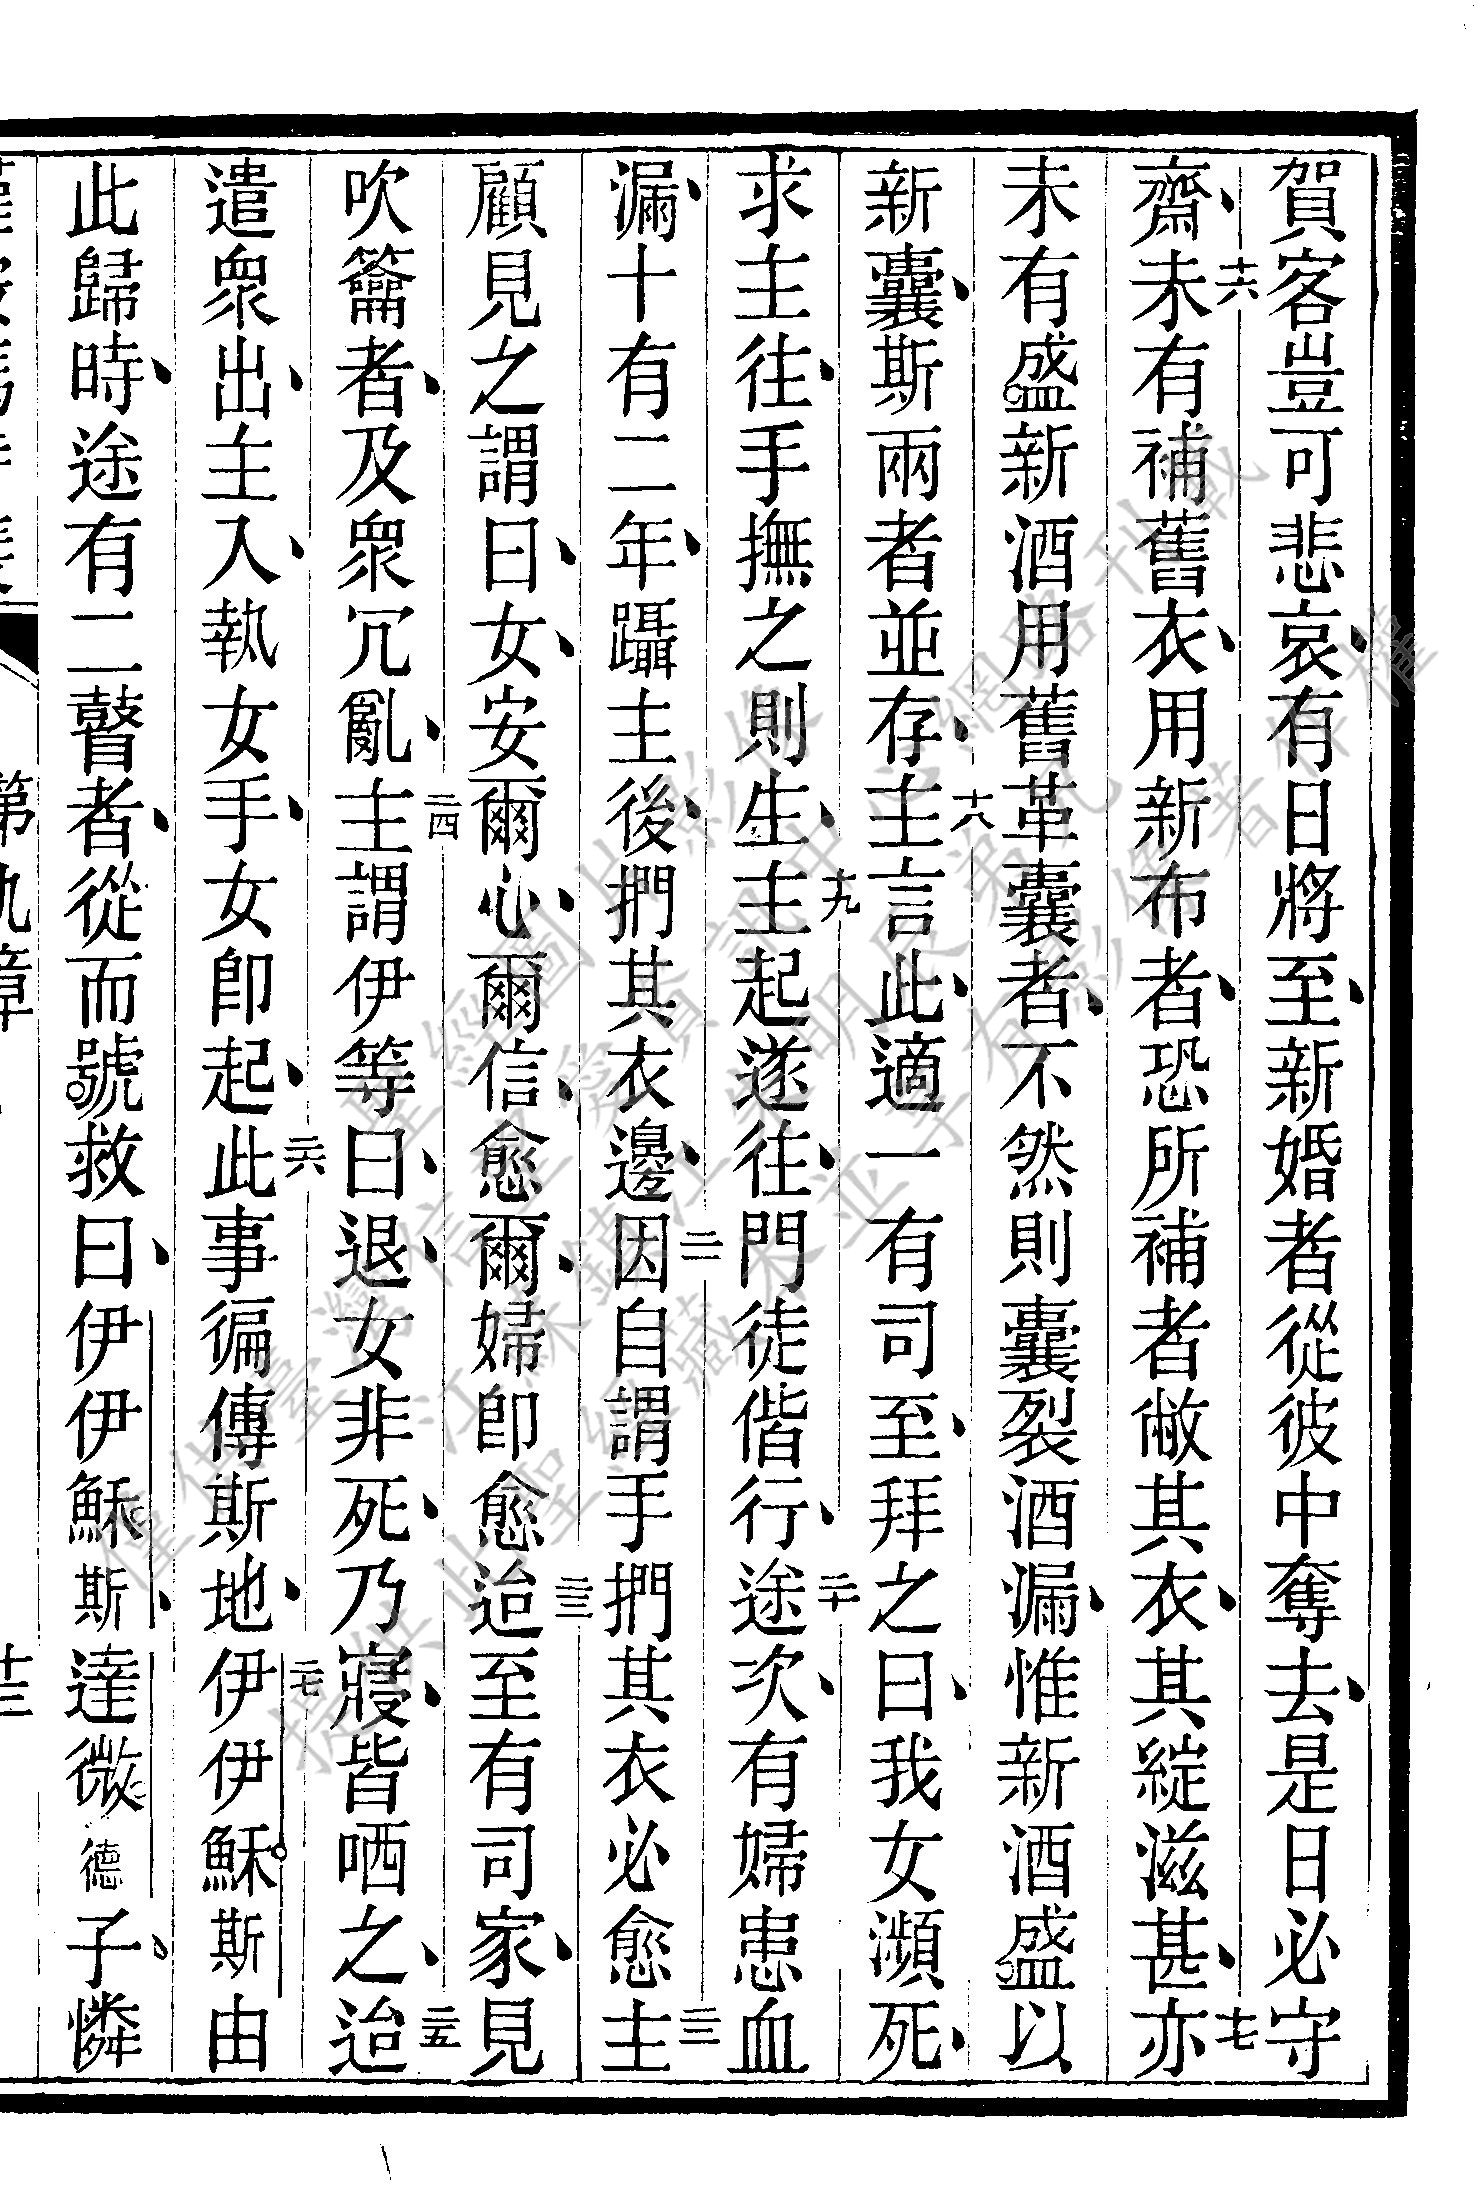 賀客豈可悲哀有日將至新婚者從彼中奪去是日必守
齋十六未有補舊衣用新布者恐所補者敝其衣其綻滋甚十七亦
未有盛新酒用舊革囊者不然則囊裂酒漏惟新酒盛以
新囊斯兩者並存十八主言此適一有司至拜之曰我女瀕死
求主往手撫之則生十九主起遂往門徒偕行二十途次有婦患血
漏十有二年躡主後捫其衣邊二一因自謂手捫其衣必愈二二主
顧見之謂曰女安爾心爾信愈爾婦即愈二三迨至有司家見
吹籥者及眾冗亂二四主謂伊等曰退女非死乃寢皆哂之二五迨
遣眾出主入執女手女即起二六此事徧傳斯地二七伊伊穌斯由
此歸時途有二瞽者從而號救曰伊伊穌斯達微德子憐
第九章
十三